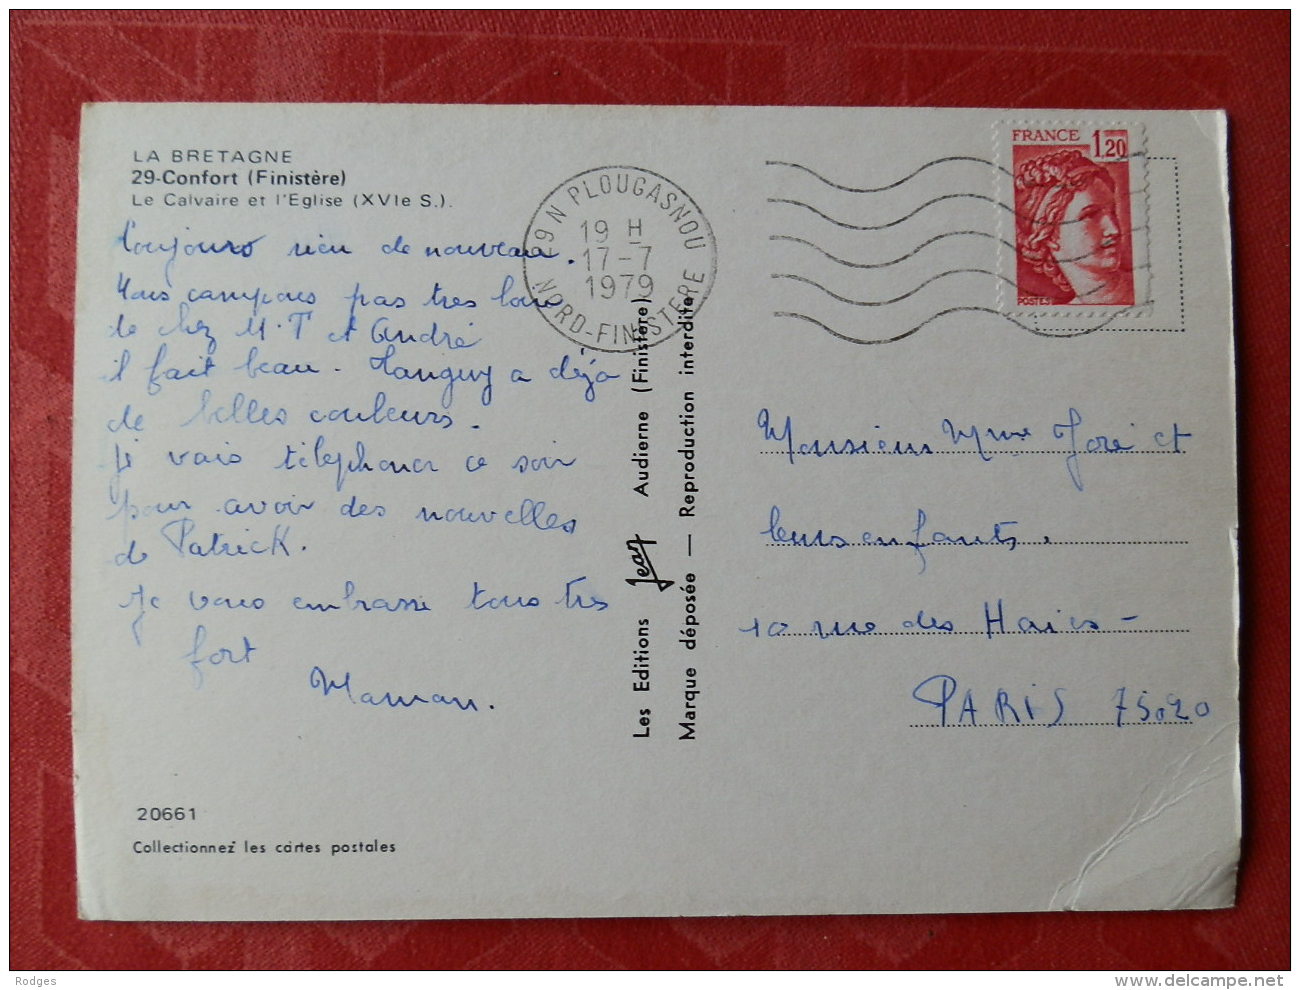 LA BRETAGNE
29-Confort (Finistère)
Le Calvaire et l'Eglise (XVIe S.).
toujours rien de nouveau.
Nous campons pas très loin
de chez M.T et André
il fait beau - Tanguy a déjà
de belles couleurs.
Je vais téléphoner ce soir
pour avoir des nouvelles
de Patrick.
Je vous embrasse tous très
fort
Maman.
20661
Collectionnez les cartes postales
29 N PLOUGASNOU
19 H
17-7
1979
NORD-FINISTERE
Les Editions Jean Audierne (Finistère)
Marque déposée — Reproduction interdite
FRANCE 1,20
POSTES
Monsieur Mme Joré et
leurs enfants.
10 rue des Haies -
PARIS 75020
Rodges
delcampe.net